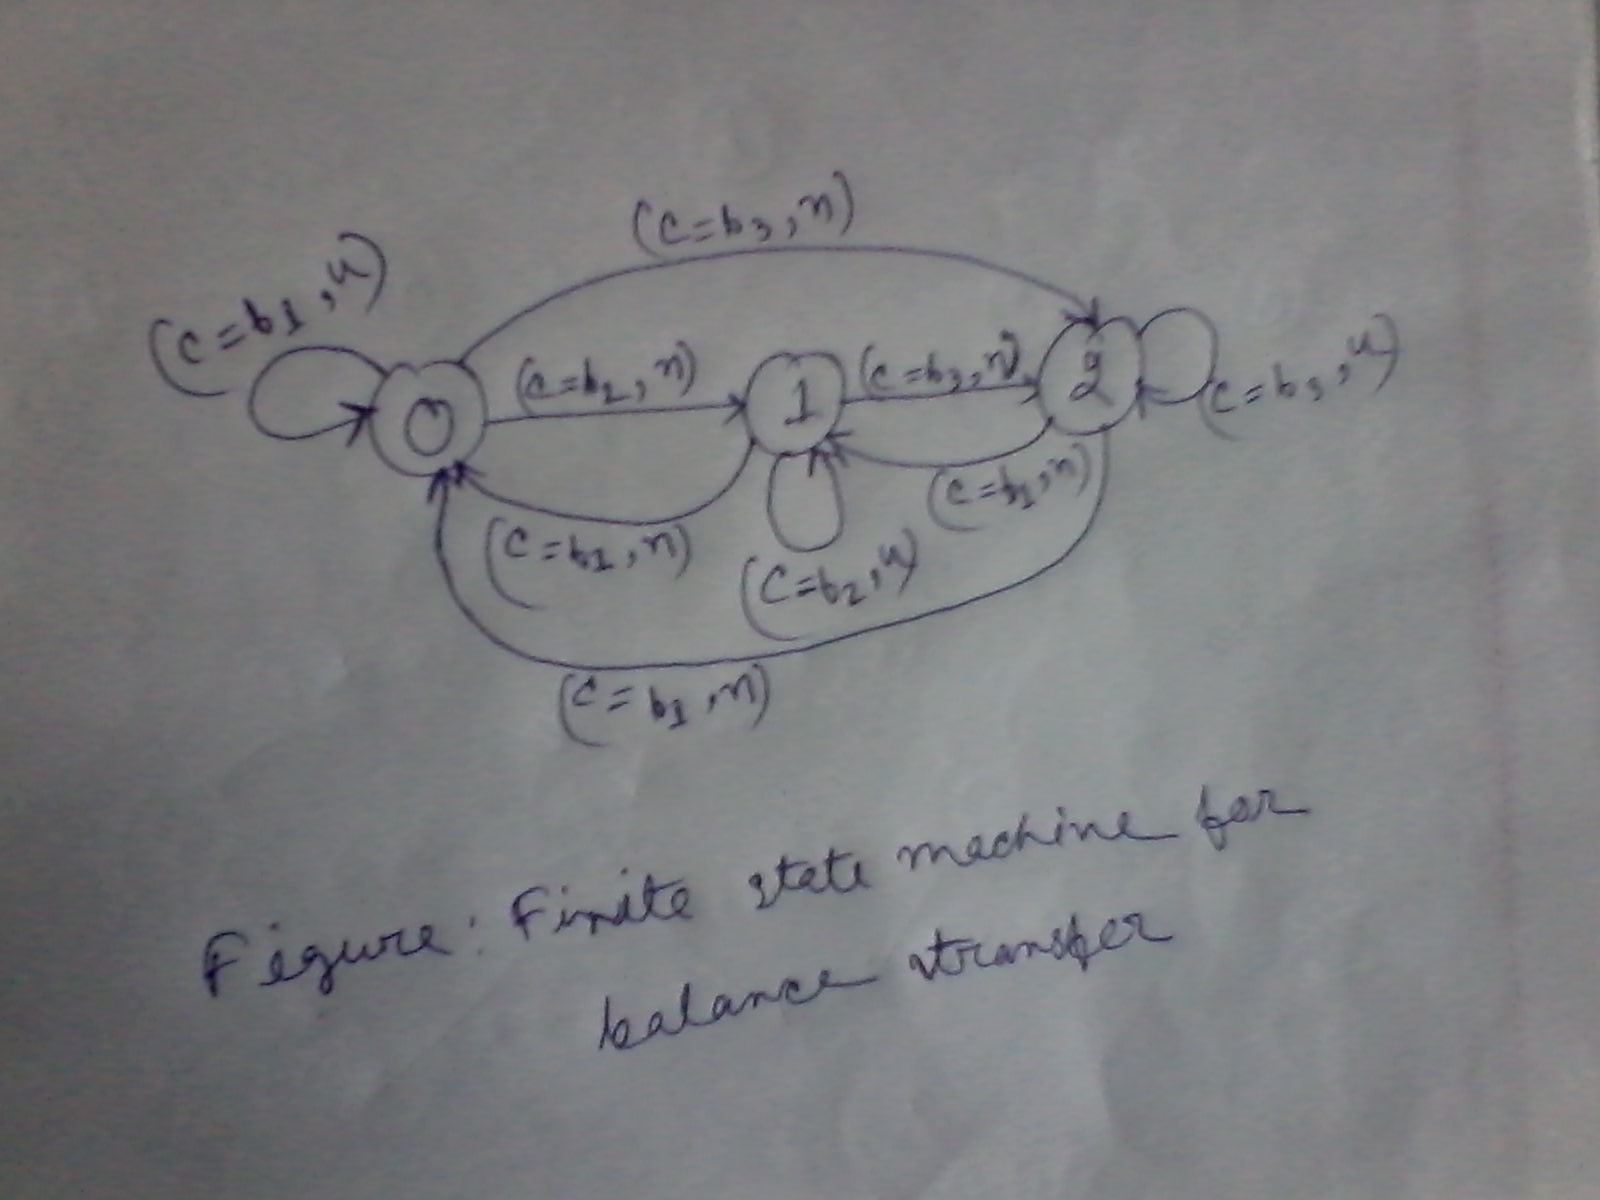 (c=b3,n)
(c=b1,u)
(c=b2,n)
(c=b3,n)
(c=b3,u)
0
1
2
(c=b1,n)
(c=b1,n)
(c=b2,u)
(c=b1,n)
Figure: Finite state machine for
balance transfer